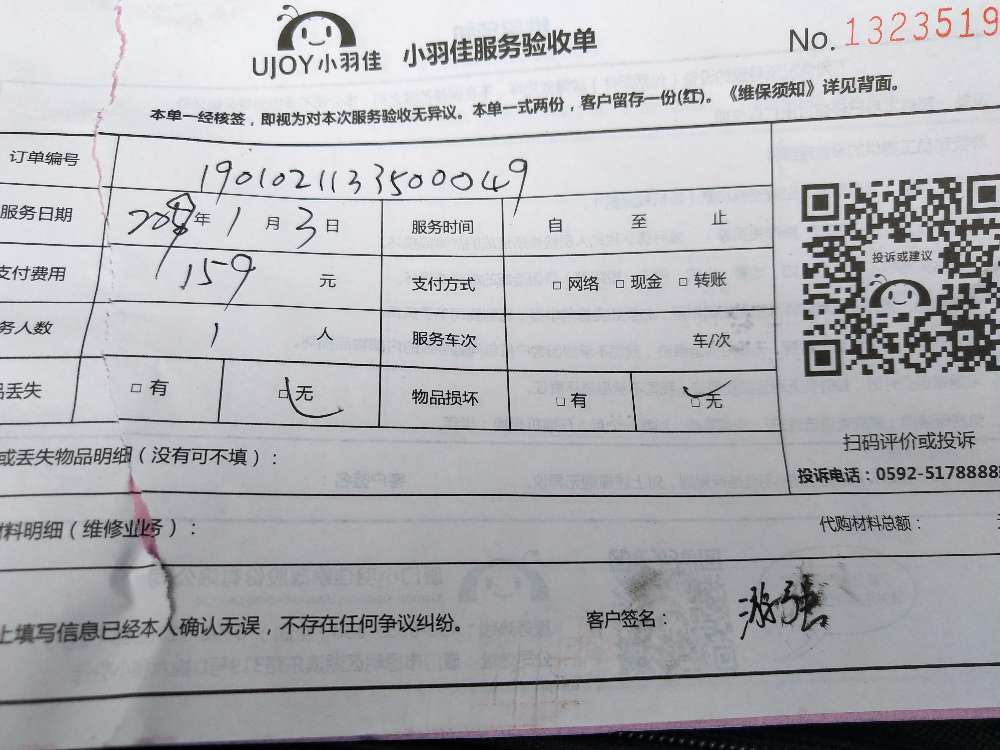 UJOY小羽佳 小羽佳服务验收单 No. 1323519
本单一经核签，即视为对本次服务验收无异议。本单一式两份，客户留存一份(红)。《维保须知》详见背面。
订单编号 19010211335000049
服务日期 年 1 月 3 日 服务时间 自 至 止
支付费用 159 元 支付方式 □ 网络 □ 现金 □ 转账
务人数 1 人 服务车次 车/次
品丢失 □ 有 □ 无 物品损坏 □ 有 □ 无
投诉或建议
扫码评价或投诉
投诉电话：0592-5178888
或丢失物品明细（没有可不填）：
材料明细（维修业务）： 代购材料总额：
上填写信息已经本人确认无误，不存在任何争议纠纷。 客户签名：